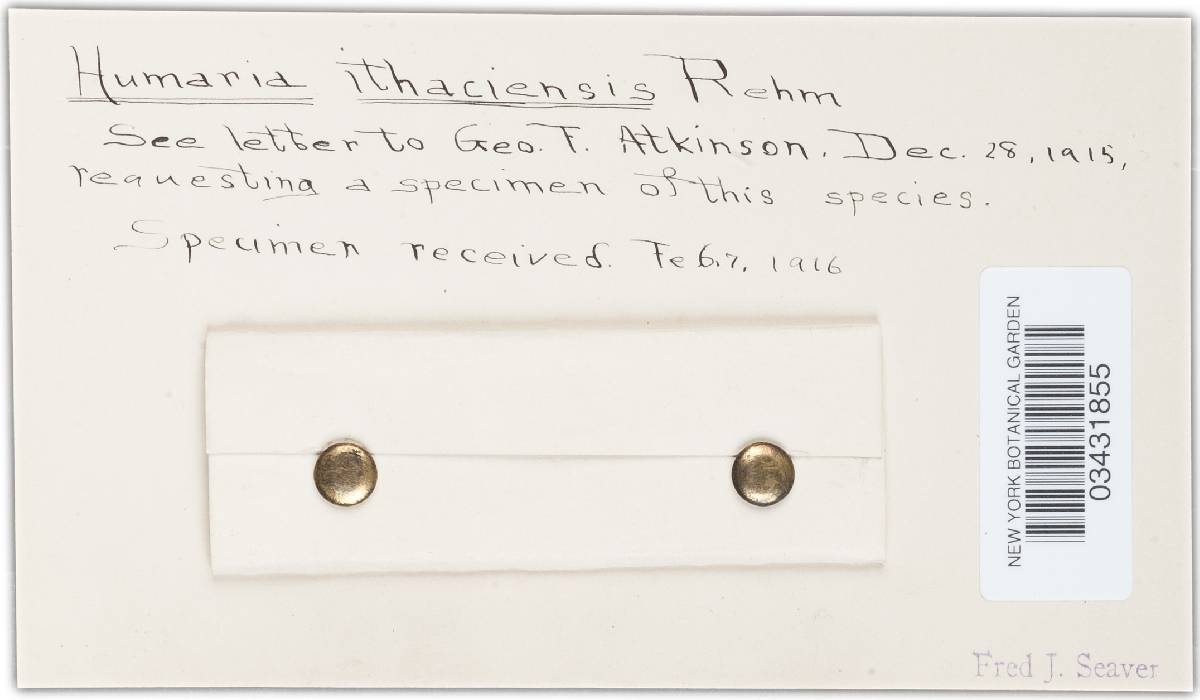 Humaria ithaciensis Rehm
See letter to Geo. F. Atkinson, Dec. 28, 1915,
requesting a specimen of this species.
Specimen received. Feb. 7, 1916
NEW YORK BOTANICAL GARDEN
03431855
Fred J. Seaver